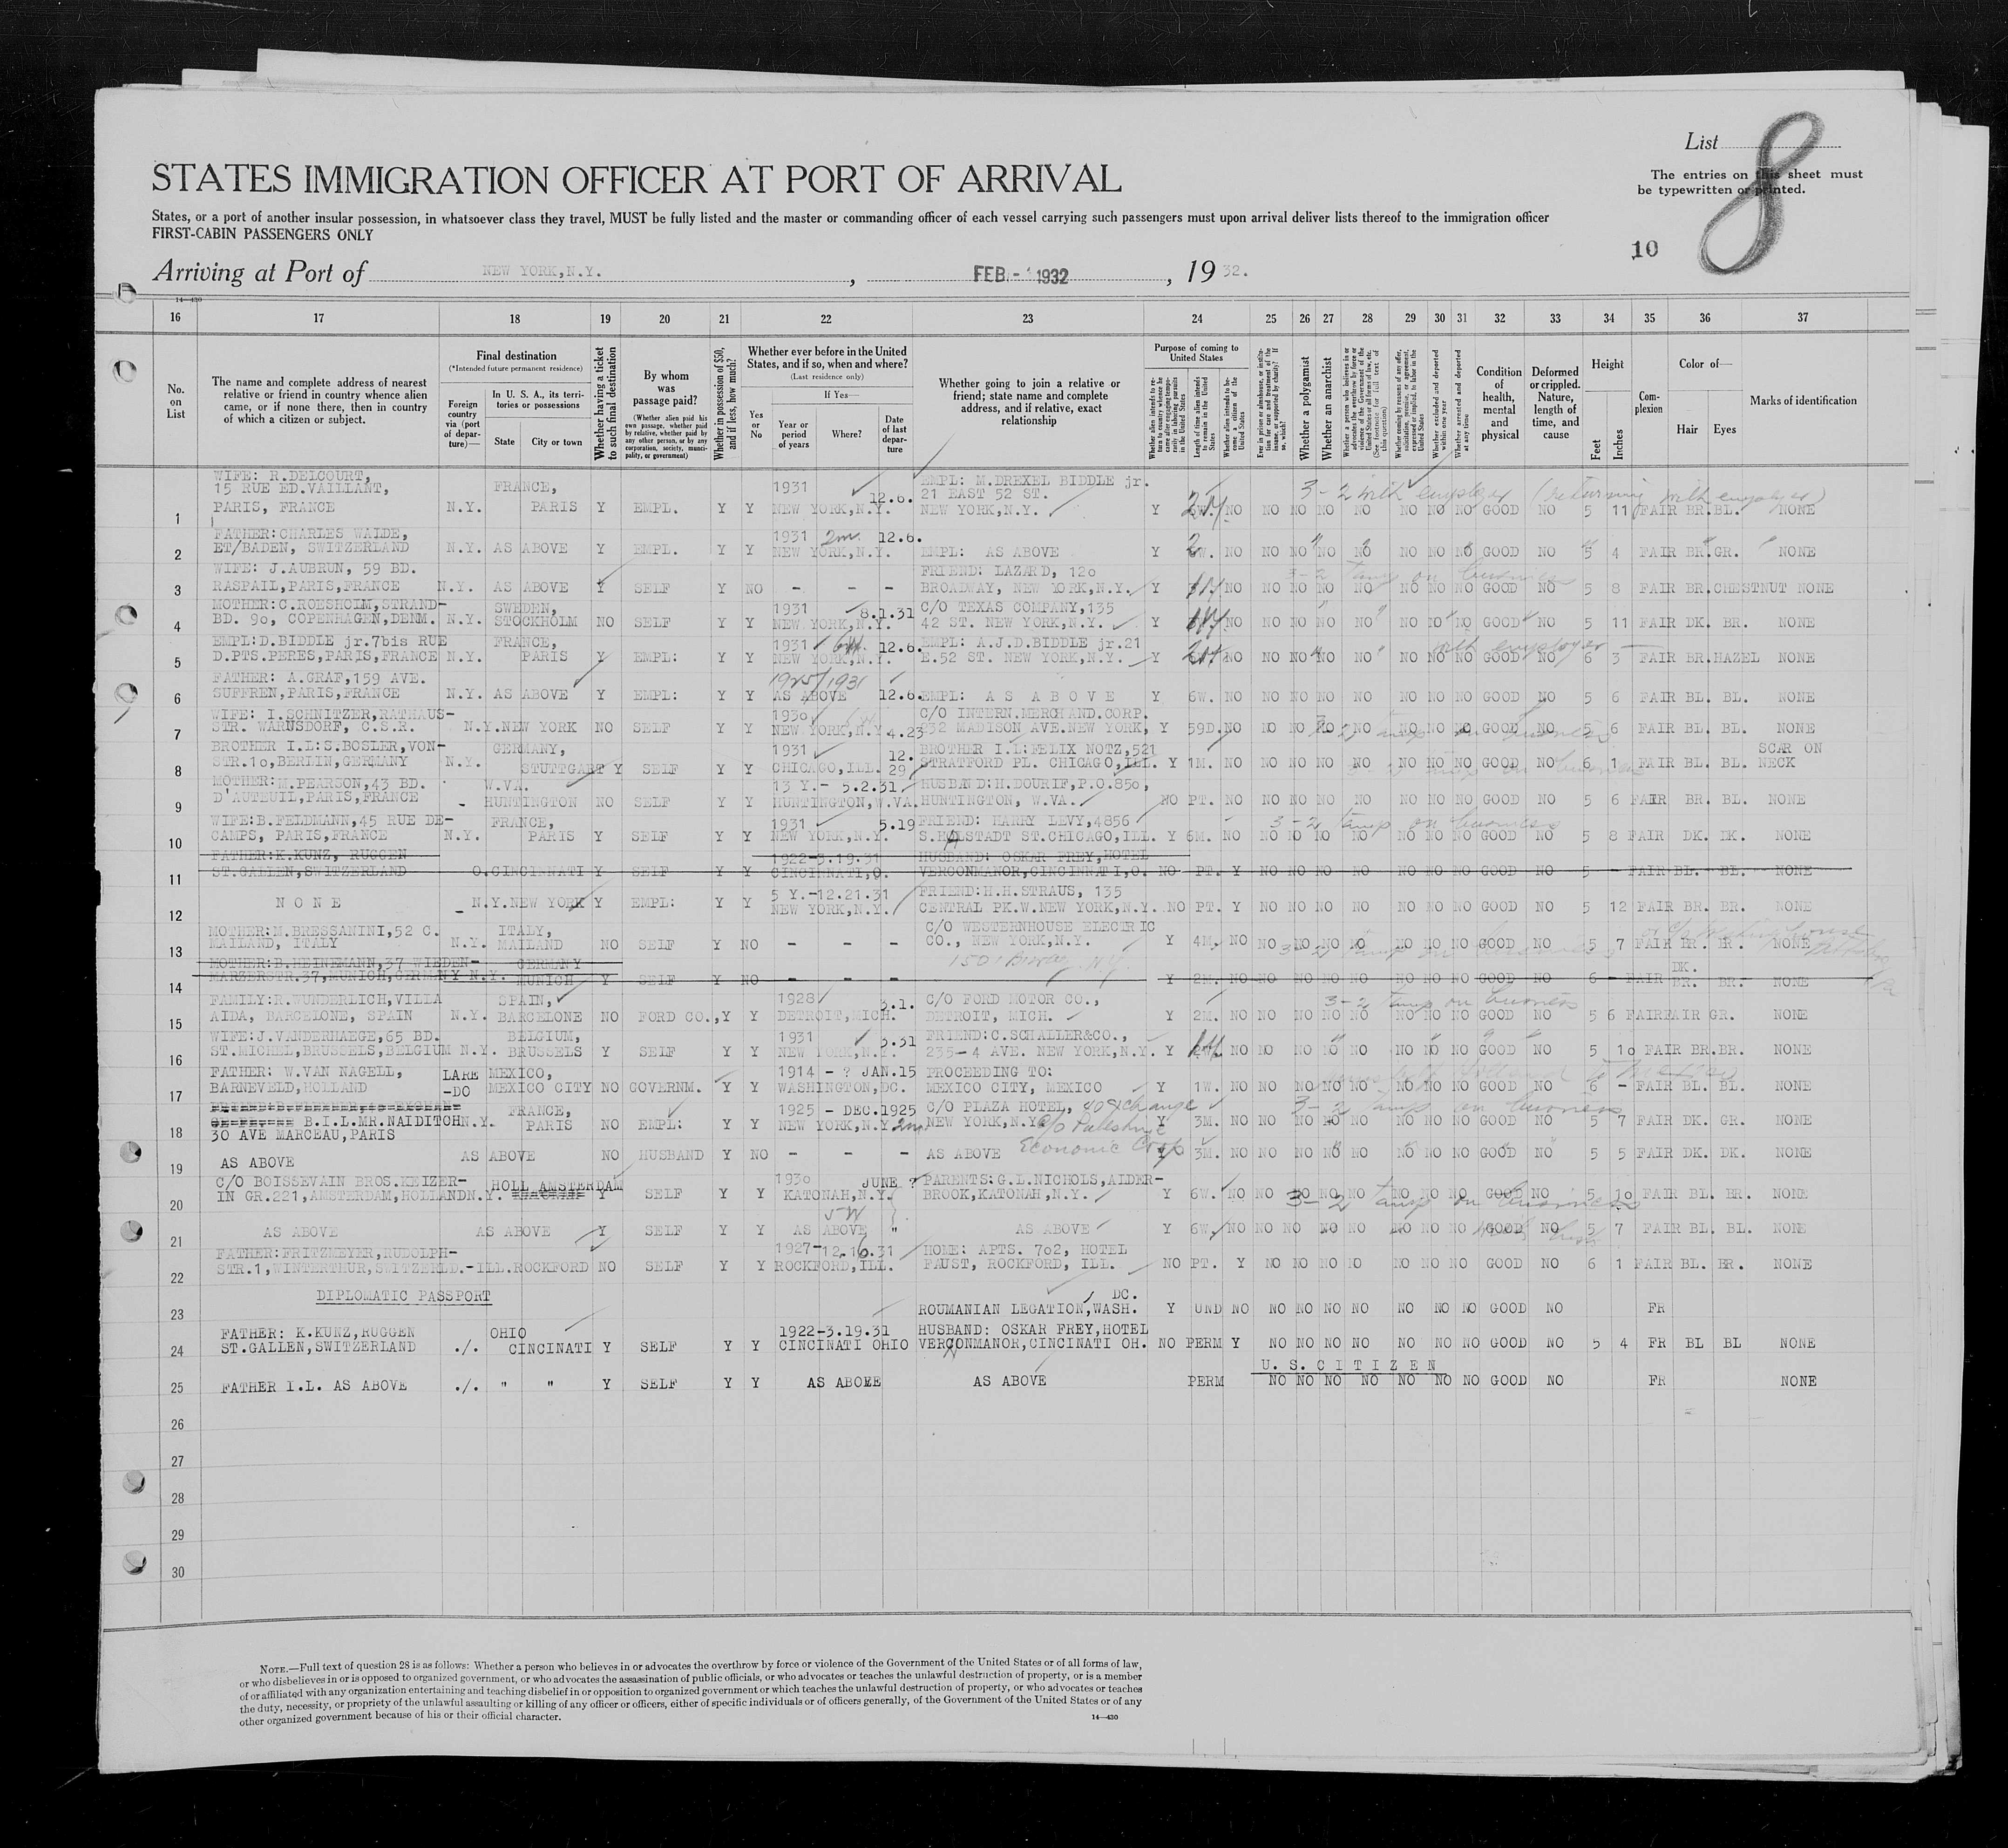 List 8
The entries on this sheet must
be typewritten or printed.
STATES IMMIGRATION OFFICER AT PORT OF ARRIVAL
States, or a port of another insular possession, in whatsoever class they travel, MUST be fully listed and the master or commanding officer of each vessel carrying such passengers must upon arrival deliver lists thereof to the immigration officer
FIRST-CABIN PASSENGERS ONLY
10
Arriving at Port of NEW YORK,N.Y. , FEB - 1932 , 19 32.
14—430
16 17 18 19 20 21 22 23 24 25 26 27 28 29 30 31 32 33 34 35 36 37
No. on List
The name and complete address of nearest relative or friend in country whence alien came, or if none there, then in country of which a citizen or subject.
Final destination
(*Intended future permanent residence)
Foreign country via (port of departure)—
In U. S. A., its territories or possessions
State City or town
Whether having a ticket to such final destination
By whom was passage paid?
(Whether alien paid his own passage, whether paid by relative, whether paid by any other person, or by any corporation, society, municipality, or government)
Whether in possession of $50, and if less, how much?
Whether ever before in the United States, and if so, when and where?
(Last residence only)
Yes or No
If Yes—
Year or period of years
Where?
Date of last departure
Whether going to join a relative or friend; state name and complete address, and if relative, exact relationship
Purpose of coming to United States
Whether alien intends to return to country whence he came after engaging temporarily in laboring pursuits in the United States
Length of time alien intends to remain in the United States
Whether alien intends to become a citizen of the United States
Ever in prison or almshouse, or institution for care and treatment of the insane, or supported by charity? If so, which?
Whether a polygamist
Whether an anarchist
(See footnote for full text of this question)
Whether coming by reasons of any offer, solicitation, promise, or agreement, expressed or implied, to labor in the United States
Whether excluded and deported within one year
Whether arrested and deported at any time
Condition of health, mental and physical
Deformed or crippled. Nature, length of time, and cause
Height
Feet Inches
Complexion
Color of—
Hair Eyes
Marks of identification
WIFE: R.DELCOURT, FRANCE, 1931 EMPL: M.DREXEL BIDDLE jr.
15 RUE ED.VAILLANT, 12.6. 21 EAST 52 ST. 3-2 with employer (returning with employer)
1 PARIS, FRANCE N.Y. PARIS Y EMPL. Y Y NEW YORK,N.Y. NEW YORK,N.Y. Y NO NO NO NO NO NO NO NO GOOD NO 5 11 FAIR BR. BL. NONE
FATHER:CHARLES WAIDE, 1931 2m. 12.6.
2 ET/BADEN, SWITZERLAND N.Y. AS ABOVE Y EMPL. Y Y NEW YORK,N.Y. EMPL: AS ABOVE Y NO NO NO NO NO NO NO NO GOOD NO 5 4 FAIR BR. GR. NONE
WIFE: J.AUBRUN, 59 BD. FRIEND: LAZARD, 120 3-2 temp on business
3 RASPAIL,PARIS,FRANCE N.Y. AS ABOVE Y SELF Y NO - - - BROADWAY, NEW YORK,N.Y. Y NO NO NO NO NO NO NO NO GOOD NO 5 8 FAIR BR.CHESTNUT NONE
MOTHER:C.ROESHOLM,STRAND- SWEDEN, 1931 8.1.31 C/O TEXAS COMPANY,135
4 BD. 90, COPENHAGEN,DENM. N.Y. STOCKHOLM NO SELF Y Y NEW YORK,N.Y. 42 ST. NEW YORK,N.Y. Y NO NO NO NO NO NO NO NO GOOD NO 5 11 FAIR DK. BR. NONE
EMPL:D.BIDDLE jr.7bis RUE FRANCE, 1931 12.6. EMPL: A.J.D.BIDDLE jr.21 with employer
5 D.PTS.PERES,PARIS,FRANCE N.Y. PARIS Y EMPL: Y Y NEW YORK,N.Y. E.52 ST. NEW YORK,N.Y. Y NO NO NO NO NO NO NO NO GOOD NO 6 3 FAIR BR.HAZEL NONE
FATHER: A.GRAF,159 AVE. 1925/1931
6 SUFFREN,PARIS,FRANCE N.Y. AS ABOVE Y EMPL: Y Y AS ABOVE 12.6. EMPL: A S A B O V E Y 6W. NO NO NO NO NO NO NO NO GOOD NO 5 6 FAIR BL. BL. NONE
WIFE: I.SCHNITZER,RATHAUS- 1930 C/O INTERN.MERCHAND.CORP.
7 STR. WARNSDORF, C.S.R. N.Y.NEW YORK NO SELF Y Y NEW YORK,N.Y. 4.23 232 MADISON AVE.NEW YORK, Y 59D. NO NO NO NO NO NO NO NO GOOD NO 5 6 FAIR BL. BL. NONE
BROTHER I.L:S.BOSLER,VON- GERMANY, 1931 12. BROTHER I.L:FELIX NOTZ,521 SCAR ON
8 STR.10,BERLIN,GERMANY N.Y. STUTTGART Y SELF Y Y CHICAGO,ILL. 29 STRATFORD PL. CHICAGO,ILL. Y 1M. NO NO NO NO NO NO NO NO GOOD NO 6 1 FAIR BL. BL. NECK
MOTHER:M.PEARSON,43 BD. W.VA. 13 Y.- 5.2.31 HUSBAND:H.DOURIF,P.O.850,
9 D'AUTEUIL,PARIS,FRANCE - HUNTINGTON NO SELF Y Y HUNTINGTON,W.VA. HUNTINGTON, W.VA. NO PT. NO NO NO NO NO NO NO NO GOOD NO 5 6 FAIR BR. BL. NONE
WIFE:B.FELDMANN,45 RUE DE- FRANCE, 1931 5.19 FRIEND: HARRY LEVY,4856 3-2 temp on business
10 CAMPS, PARIS,FRANCE N.Y. PARIS Y SELF Y Y NEW YORK,N.Y. S.HALSTADT ST.CHICAGO,ILL. Y 6M. NO NO NO NO NO NO NO NO GOOD NO 5 8 FAIR DK. DK. NONE
FATHER:K.KUNZ, RUGGEN 1922-3.19.31 HUSBAND: OSKAR FREY,HOTEL
11 ST.GALLEN,SWITZERLAND O.CINCINNATI Y SELF Y Y CINCINNATI,O. VERCONMANOR,CINCINNATI,O. NO PT. Y NO NO NO NO NO NO NO GOOD NO 5 - FAIR BL. BL. NONE
5 Y.-12.21.31 FRIEND:H.H.STRAUS, 135
12 N O N E - N.Y.NEW YORK Y EMPL: Y Y NEW YORK,N.Y. CENTRAL PK.W.NEW YORK,N.Y. NO PT. Y NO NO NO NO NO NO NO GOOD NO 5 12 FAIR BR. BR. NONE
MOTHER:M.BRESSANINI,52 C. ITALY, C/O WESTERNHOUSE ELECTRIC
13 MAILAND, ITALY N.Y. MAILAND NO SELF Y NO - - - CO., NEW YORK,N.Y. Y 4M. NO NO NO NO NO NO NO NO GOOD NO 5 7 FAIR BR. BR. NONE
MOTHER:B.HEINEMANN,37 WIEDEN- GERMANY DK.
14 MARZERSTR.37,MUNICH,GERMANY N.Y. MUNICH Y SELF Y NO - - - Y 2M. NO NO NO NO NO NO NO NO GOOD NO 6 - FAIR BR. BR. NONE
FAMILY:R.WUNDERLICH,VILLA SPAIN, 1928 3.1. C/O FORD MOTOR CO., 3-2 temp on business
15 AIDA, BARCELONE, SPAIN N.Y. BARCELONE NO FORD CO., Y Y DETROIT,MICH. DETROIT, MICH. Y 2M. NO NO NO NO NO NO NO NO GOOD NO 5 6 FAIR FAIR GR. NONE
WIFE:J.VANDERHAEGE,65 BD. BELGIUM, 1931 3.31 FRIEND:C.SCHALLER&CO.,
16 ST.MICHEL,BRUSSELS,BELGIUM N.Y. BRUSSELS Y SELF Y Y NEW YORK,N.Y. 235-4 AVE. NEW YORK,N.Y. Y NO NO NO NO NO NO NO NO GOOD NO 5 10 FAIR BR.BR. NONE
FATHER: W.VAN NAGELL, LARE MEXICO, 1914 - ? JAN.15 PROCEEDING TO:
17 BARNEVELD,HOLLAND -DO MEXICO CITY NO GOVERNM. Y Y WASHINGTON,DC. MEXICO CITY, MEXICO Y 1W. NO NO NO NO NO NO NO NO GOOD NO 6 - FAIR BL. BL. NONE
FRANCE, 1925 - DEC.1925 C/O PLAZA HOTEL, 3-2 temp on business
18 B.I.L.MR.NAIDITCH N.Y. PARIS NO EMPL: Y Y NEW YORK,N.Y. 2m NEW YORK,N.Y. c/o Palestine Y 3M. NO NO NO NO NO NO NO NO GOOD NO 5 7 FAIR DK. GR. NONE
30 AVE MARCEAU,PARIS
19 AS ABOVE AS ABOVE NO HUSBAND Y NO - - - AS ABOVE Economic Corp Y 3M. NO NO NO NO NO NO NO NO GOOD NO 5 5 FAIR DK. DK. NONE
C/O BOISSEVAIN BROS.KEIZER- HOLL AMSTERDAM 1930 JUNE ? PARENTS:G.L.NICHOLS,ALDER-
20 IN GR.221,AMSTERDAM,HOLLAND N.Y. Y SELF Y Y KATONAH,N.Y. BROOK,KATONAH,N.Y. Y 6W. NO NO NO NO NO NO NO NO GOOD NO 5 10 FAIR BL. BR. NONE
3-2 temp on business
21 AS ABOVE AS ABOVE Y SELF Y Y AS ABOVE " AS ABOVE Y 6W. NO NO NO NO NO NO NO NO GOOD NO 5 7 FAIR BL. BL. NONE
FATHER:FRITZMEYER,RUDOLPH- 1927-12.16.31 HOME: APTS. 702, HOTEL
22 STR.1,WINTERTHUR,SWITZERLD.-ILL.ROCKFORD NO SELF Y Y ROCKFORD,ILL. FAUST, ROCKFORD, ILL. NO PT. Y NO NO NO NO NO NO NO GOOD NO 6 1 FAIR BL. BR. NONE
DIPLOMATIC PASSPORT DC.
23 ROUMANIAN LEGATION,WASH. Y UND NO NO NO NO NO NO NO NO GOOD NO FR
FATHER: K.KUNZ,RUGGEN OHIO 1922-3.19.31 HUSBAND: OSKAR FREY,HOTEL
24 ST.GALLEN,SWITZERLAND ./. CINCINATI Y SELF Y Y CINCINATI OHIO VERCONMANOR,CINCINATI OH. NO PERM Y NO NO NO NO NO NO NO GOOD NO 5 4 FR BL BL NONE
U. S. C I T I Z E N
25 FATHER I.L. AS ABOVE ./. " " Y SELF Y Y AS ABOVE AS ABOVE PERM NO NO NO NO NO NO NO GOOD NO FR NONE
26
27
28
29
30
NOTE.—Full text of question 28 is as follows: Whether a person who believes in or advocates the overthrow by force or violence of the Government of the United States or of all forms of law,
or who disbelieves in or is opposed to organized government, or who advocates the assassination of public officials, or who advocates or teaches the unlawful destruction of property, or is a member
of or affiliated with any organization entertaining and teaching disbelief in or opposition to organized government or which teaches the unlawful destruction of property, or who advocates or teaches
the duty, necessity, or propriety of the unlawful assaulting or killing of any officer or officers, either of specific individuals or of officers generally, of the Government of the United States or of any
other organized government because of his or their official character.
14—430